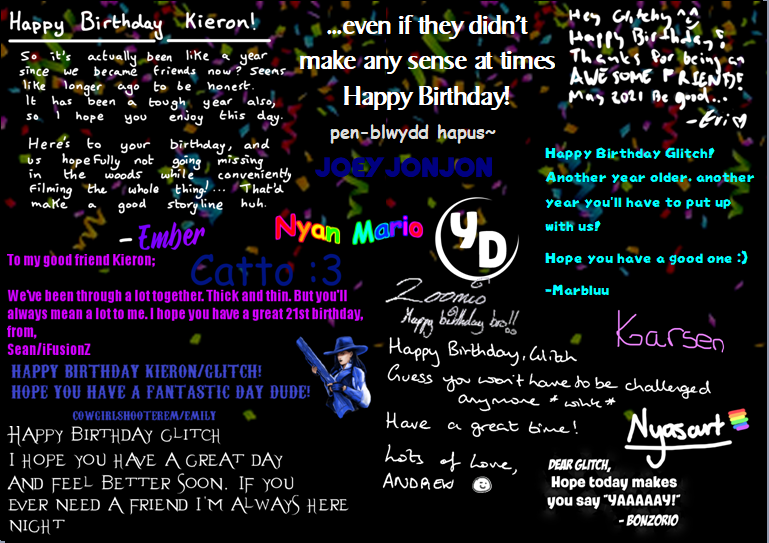 Happy Birthday Kieron!
So it's actually been like a year
since we became friends now? Seems
like longer ago to be honest.
It has been a tough year also,
so I hope you enjoy this day.
Here's to your birthday, and
us hopefully not going missing
in the woods while conveniently
filming the whole thing!... That'd
make a good storyline huh.
- Ember
...even if they didn't
make any sense at times
Happy Birthday!
pen-blwydd hapus~
JOEYJONJON
Hey Glitchy ^^
Happy Birthday!
Thanks for being an
AWESOME FRIEND!
May 2021 Be good...
-Evi♡
Happy Birthday Glitch!
Another year older. another
year you'll have to put up
with us!
Hope you have a good one :)
-Marbluu
Nyan Mario
YD
Catto :3
To my good friend Kieron;
We've been through a lot together. Thick and thin. But you'll
always mean a lot to me. I hope you have a great 21st birthday,
from,
Sean/iFusionZ
HAPPY BIRTHDAY KIERON/GLITCH!
HOPE YOU HAVE A FANTASTIC DAY DUDE!
COWGIRLSHOOTEREM/EMILY
Happy Birthday Glitch
I hope you have a great day
and feel better soon. If you
ever need a friend I'm always here
Night
Zoomio
Happy birthday bro!!
Happy Birthday, Glitch
Guess you won't have to be challenged
anymore *wink*
Have a great time!
Lots of Love,
ANDREW
Karsen
Nyasart
DEAR GLITCH,
Hope today makes
you say "YAAAAAY!"
- BONZORIO